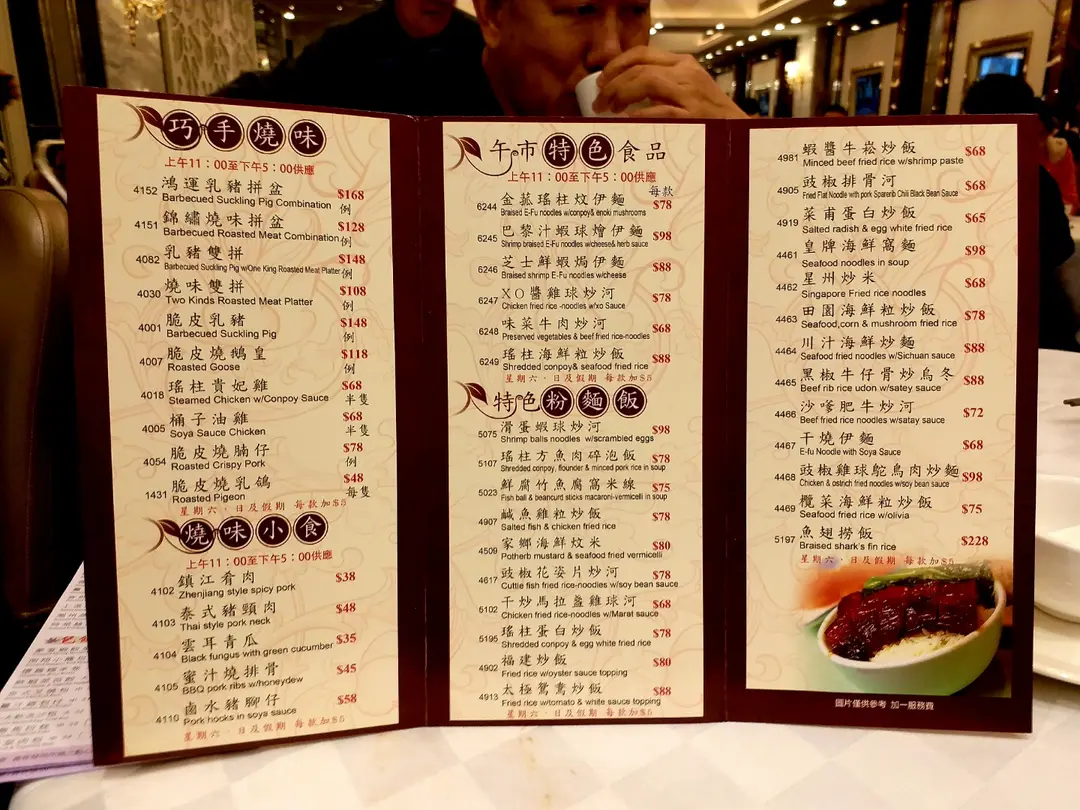 巧手燒味
上午11：00至下午5：00供應
4152 鴻運乳豬拼盆 $168
Barbecued Suckling Pig Combination 例
4151 錦繡燒味拼盆 $128
Barbecued Roasted Meat Combination 例
4082 乳豬雙拼 $148
Barbecued Suckling Pig w/One King Roasted Meat Platter 例
4030 燒味雙拼 $108
Two Kinds Roasted Meat Platter 例
4001 脆皮乳豬 $148
Barbecued Suckling Pig 例
4007 脆皮燒鵝皇 $118
Roasted Goose 例
4018 瑤柱貴妃雞 $68
Steamed Chicken w/Conpoy Sauce 半隻
4005 桶子油雞 $68
Soya Sauce Chicken 半隻
4054 脆皮燒腩仔 $78
Roasted Crispy Pork 例
1431 脆皮燒乳鴿 $48
Roasted Pigeon 每隻
星期六、日及假期 每款加$5
燒味小食
上午11：00至下午5：00供應
4102 鎮江肴肉 $38
Zhenjiang style spicy pork
4103 泰式豬頸肉 $48
Thai style pork neck
4104 雲耳青瓜 $35
Black fungus with green cucumber
4105 蜜汁燒排骨 $45
BBQ pork ribs w/honeydew
4110 鹵水豬腳仔 $58
Pork hocks in soya sauce
星期六、日及假期 每款加$5
午市特色食品
上午11：00至下午5：00供應
每款
6244 金菇瑤柱炆伊麵 $78
Braised E-Fu noodles w/conpoy& enoki mushrooms
6245 巴黎汁蝦球燴伊麵 $98
Shrimp braised E-Fu noodles w/cheese& herb sauce
6246 芝士鮮蝦焗伊麵 $88
Braised shrimp E-Fu noodles w/cheese
6247 XO醬雞球炒河 $78
Chicken fried rice -noodles w/xo Sauce
6248 味菜牛肉炒河 $68
Preserved vegetables & beef fried rice-noodles
6249 瑤柱海鮮粒炒飯 $88
Shredded conpoy& seafood fried rice
星期六、日及假期 每款加$5
特色粉麵飯
5075 滑蛋蝦球炒河 $98
Shrimp balls noodles w/scrambled eggs
5107 瑤柱方魚肉碎泡飯 $78
Shredded conpoy, flounder & minced pork rice in soup
5023 鮮腐竹魚腐窩米線 $75
Fish ball & beancurd sticks macaroni-vermicelli in soup
4907 鹹魚雞粒炒飯 $78
Salted fish & chicken fried rice
4509 家鄉海鮮炆米 $80
Potherb mustard & seafood fried vermicelli
4617 豉椒花姿片炒河 $78
Cuttle fish fried rice-noodles w/soy bean sauce
6102 干炒馬拉盞雞球河 $68
Chicken fried rice-noodles w/Marat sauce
5195 瑤柱蛋白炒飯 $78
Shredded conpoy & egg white fried rice
4902 福建炒飯 $80
Fried rice w/oyster sauce topping
4913 太極鴛鴦炒飯 $88
Fried rice w/tomato & white sauce topping
星期六、日及假期 每款加$5
4981 蝦醬牛崧炒飯 $68
Minced beef fried rice w/shrimp paste
4905 豉椒排骨河 $68
Fried Flat Noodle with pork Sparerib Chili Black Bean Sauce
4919 菜甫蛋白炒飯 $65
Salted radish & egg white fried rice
4461 皇牌海鮮窩麵 $98
Seafood noodles in soup
4462 星州炒米 $68
Singapore Fried rice noodles
4463 田園海鮮粒炒飯 $78
Seafood,corn & mushroom fried rice
4464 川汁海鮮炒麵 $88
Seafood fried noodles w/Sichuan sauce
4465 黑椒牛仔骨炒烏冬 $88
Beef rib rice udon w/satey sauce
4466 沙嗲肥牛炒河 $72
Beef fried rice noodles w/satay sauce
4467 干燒伊麵 $68
E-fu Noodle with Soya Sauce
4468 豉椒雞球鴕鳥肉炒麵 $98
Chicken & ostrich fried noodles w/soy bean sauce
4469 欖菜海鮮粒炒飯 $75
Seafood fried rice w/olivia
5197 魚翅撈飯 $228
Braised shark's fin rice
星期六、日及假期 每款加$5
圖片僅供參考 加一服務費